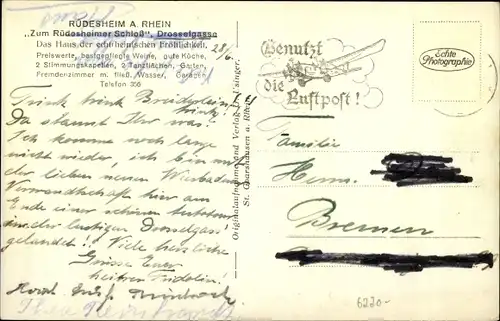 RÜDESHEIM A. RHEIN
„Zum Rüdesheimer Schloß", Drosselgasse
Das Haus der echt rheinischen Fröhlichkeit.
Preiswerte, bestgepflegte Weine, gute Küche,
2 Stimmungskapellen, 2 Tanzflächen, Garten,
Fremdenzimmer m. fließ. Wasser, Garagen
Telefon 356
28/6
Trink trink Brüderlein
trink!
Da staunt Ihr was!
Ich komme noch lange
nicht wieder, ich bin mit
der lieben neuen Wiesbadener
Verwandtschaft hier am
Ende einer schönen Autotour
in der lustigen Drosselgasse
gelandet! Viele herzliche
Grüsse Euer
heitrer Fridolin!
Originalaufnahme und Verlag
St. Goarshausen a. Rhein
Benutzt
die Luftpost!
Echte
Photographie
Familie
Herm.
Bremen
6220-